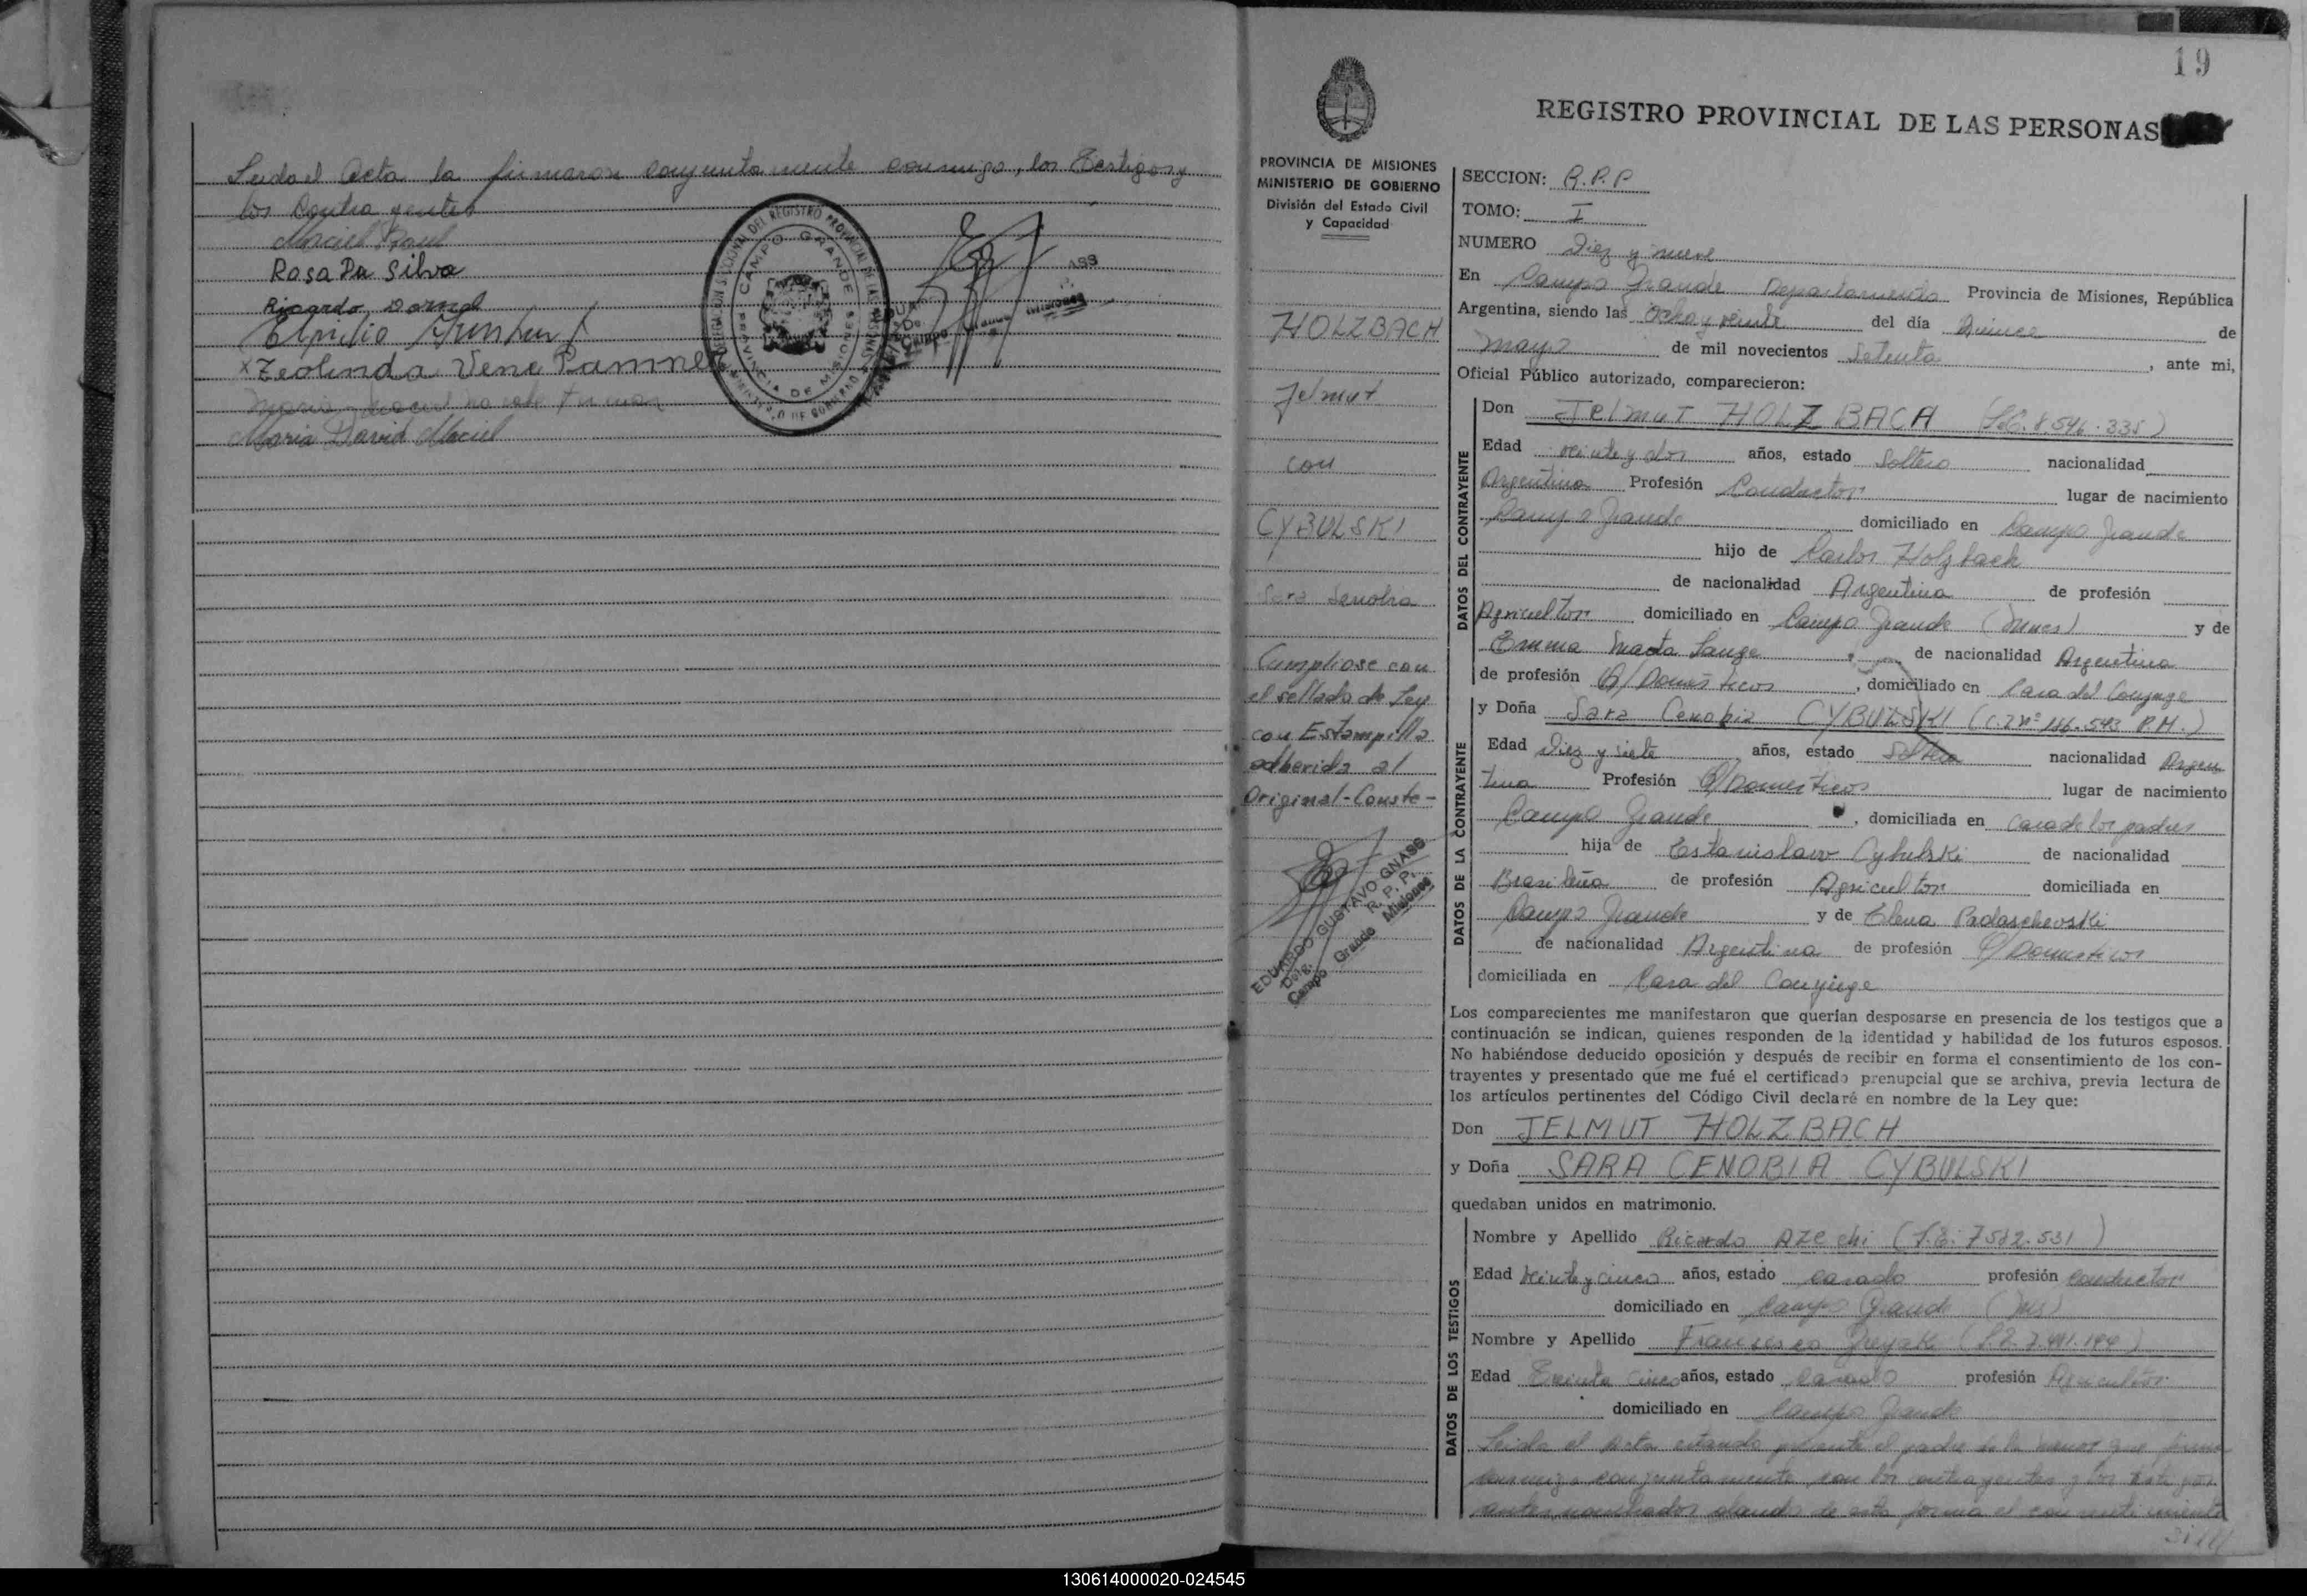 Leida el Acta la firmaron conjuntamente conmigo, los Testigos y
los Contrayentes
Maciel Raul
Rosa Da Silva
Ricardo Dornel
Elpidio
x Zeolinda Vene Ramner
Maria Maciel no sabe firmar
Maria David Maciel
DELEGACION SECCIONAL DEL REGISTRO PROVINCIAL DE LAS PERSONAS
CAMPO GRANDE
PROVINCIA DE MISIONES
MINISTERIO DE GOBIERNO
Campo Grande Misiones
19
REGISTRO PROVINCIAL DE LAS PERSONAS
PROVINCIA DE MISIONES
MINISTERIO DE GOBIERNO
División del Estado Civil
y Capacidad
HOLZBACH
Jelmut
con
CYBULSKI
Sara Senobia
Cumpliose con
el sellado de Ley
con Estampilla
adherida al
Original-Conste-
EDUARDO GUSTAVO GNASS
Delg. R. P. P.
Campo Grande Misiones
SECCION: R.P.P
TOMO: I
NUMERO Diez y nueve
En Campo Grande Departamento Provincia de Misiones, República
Argentina, siendo las Ocho y veinte del día Quince de
mayo de mil novecientos Setenta, ante mi,
Oficial Público autorizado, comparecieron:
DATOS DEL CONTRAYENTE
Don JELMUT HOLZBACH (L.E. 8.546.335)
Edad veinte y dos años, estado Soltero nacionalidad
Argentina Profesión Conductor lugar de nacimiento
Campo Grande domiciliado en Campo Grande
hijo de Carlos Holzbach
de nacionalidad Argentina de profesión
Agricultor domiciliado en Campo Grande (Mnes) y de
Emma Marta Lange de nacionalidad Argentina
de profesión Q/Domesticos, domiciliado en Casa del Conyuge
DATOS DE LA CONTRAYENTE
y Doña Sara Cenobia CYBULSKI (C.I Nº 186.543 P.M.)
Edad Diez y siete años, estado Soltera nacionalidad Argen
tina Profesión Q/Domesticos lugar de nacimiento
Campo Grande, domiciliada en Casa de los padres
hija de Estanislavo Cybulski de nacionalidad
Brasileña de profesión Agricultor domiciliada en
Campo Grande y de Elena Padaschevski
de nacionalidad Argentina de profesión Q/Domesticos
domiciliada en Casa del Conyuge
Los comparecientes me manifestaron que querían desposarse en presencia de los testigos que a
continuación se indican, quienes responden de la identidad y habilidad de los futuros esposos.
No habiéndose deducido oposición y después de recibir en forma el consentimiento de los con-
trayentes y presentado que me fué el certificado prenupcial que se archiva, previa lectura de
los artículos pertinentes del Código Civil declaré en nombre de la Ley que:
Don JELMUT HOLZBACH
y Doña SARA CENOBIA CYBULSKI
quedaban unidos en matrimonio.
DATOS DE LOS TESTIGOS
Nombre y Apellido Ricardo AZEchi (L.E: 7582.531)
Edad veinte y cinco años, estado casado profesión conductor
domiciliado en Campo Grande (Mns)
Nombre y Apellido Francisco (L.E. 7.411.194)
Edad Treinta cinco años, estado Casado profesión Agricultor
domiciliado en Campo Grande
Leida el Acta estando presente el padre de la menor que firma
conmigo conjuntamente con los contrayentes y los testigos
antes nombrados dando de esta forma el consentimiento
130614000020-024545